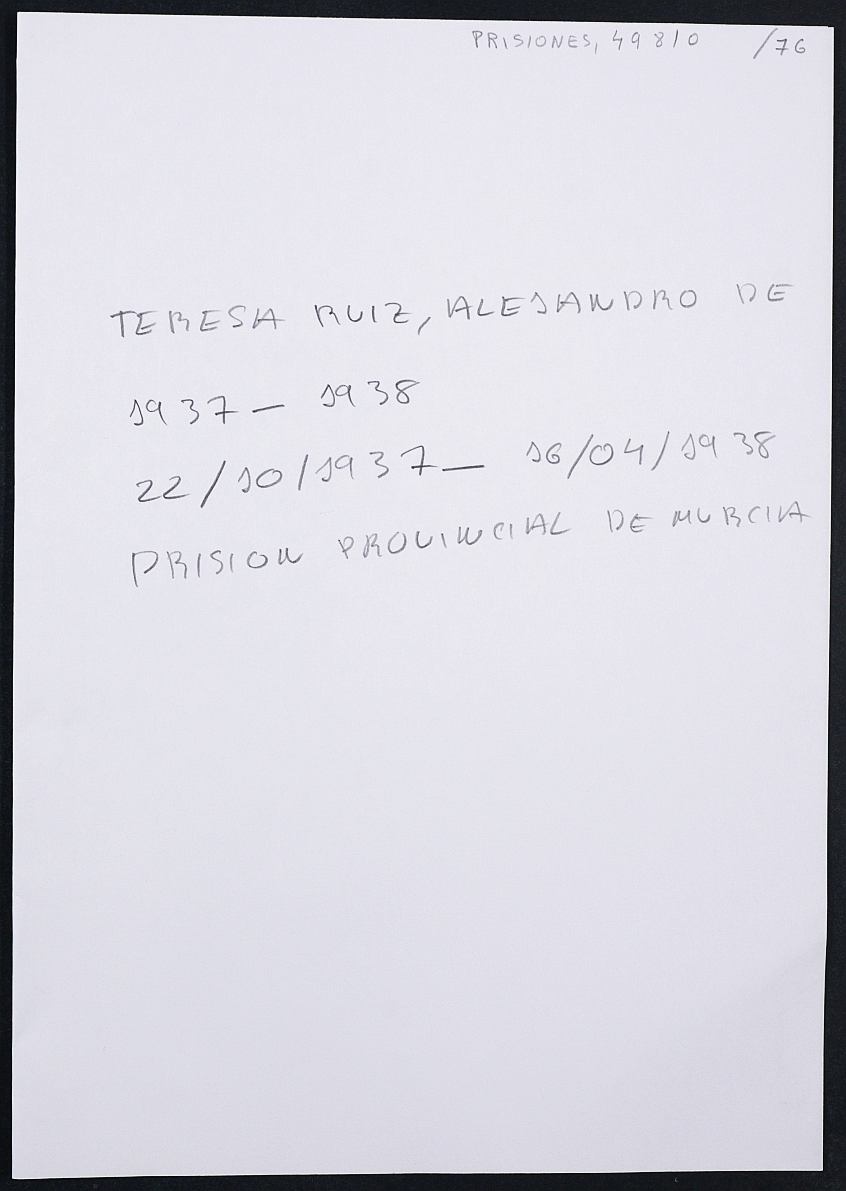 PRISIONES, 49810 /76
TERESA RUIZ, ALEJANDRO DE
1937 — 1938
22/10/1937 — 16/04/1938
PRISION PROVINCIAL DE MURCIA